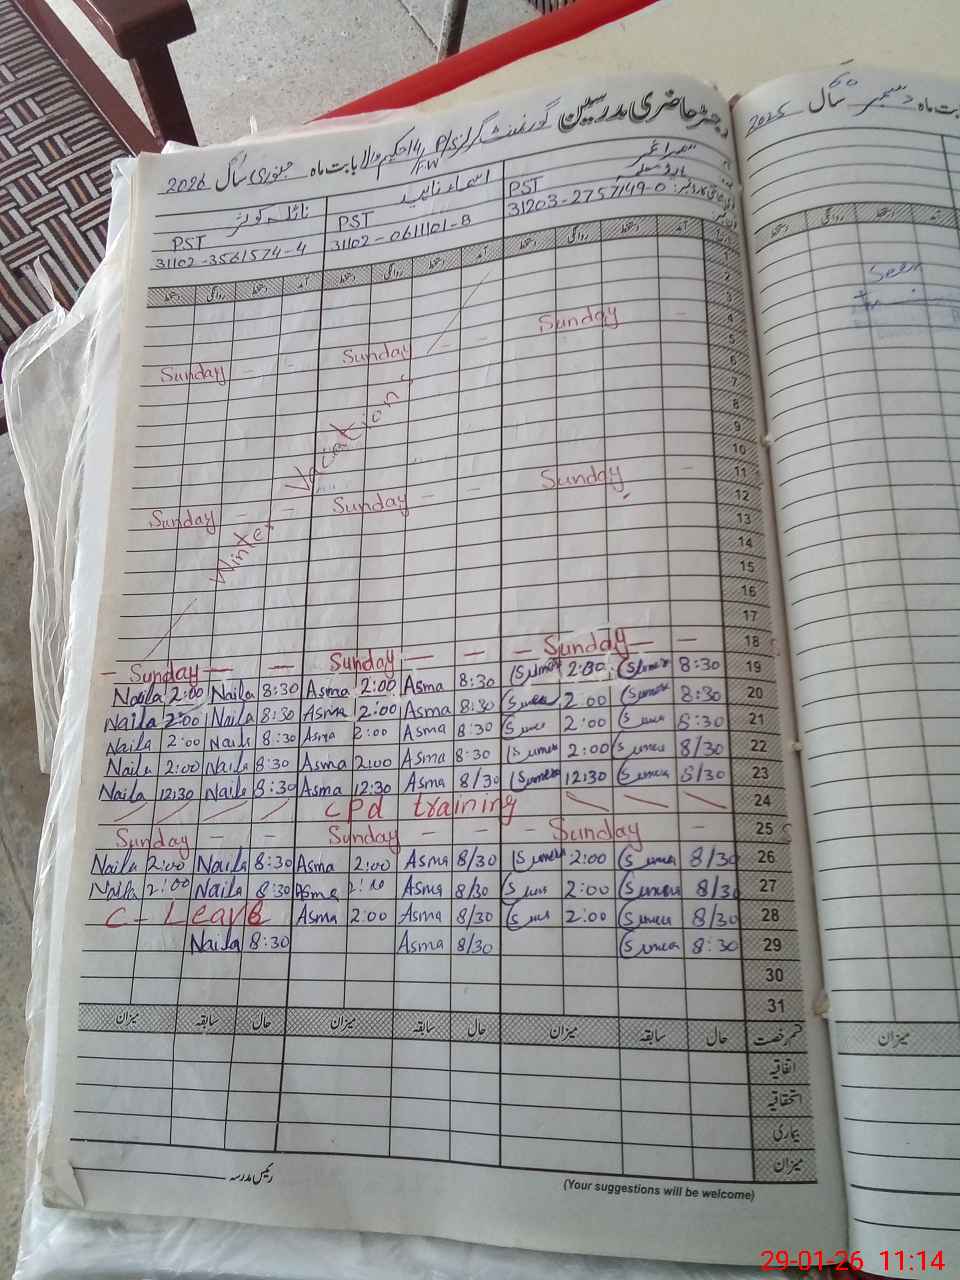 رجسٹر حاضری مدرسین گورنمنٹ گرلز P/S 14 حکیم والا بابت ماہ جنوری سال 2026
دسمبر سال 2025
بابت ماہ
نائلہ کوثر
PST
31102-3561574-4
اسماء نایاب
PST
31102-0611101-8
PST
31203-2757149-0
دستخط روانگی دستخط آمد دستخط روانگی دستخط آمد دستخط روانگی دستخط آمد
1
2
3
Sunday - - Sunday - - Sunday - 4
5
6
7
8
9
10
Sunday - - Sunday - - Sunday - 11
12
13
14
15
16
17
Winter Vacation
Sunday — — Sunday — — Sunday — 18
Naila 2:00 Naila 8:30 Asma 2:00 Asma 8:30 Sumera 2:00 Sumera 8:30 19
Naila 2:00 Naila 8:30 Asma 2:00 Asma 8:30 Sumera 2:00 Sumera 8:30 20
Naila 2:00 Naila 8:30 Asma 2:00 Asma 8:30 Sumera 2:00 Sumera 8:30 21
Naila 2:00 Naila 8:30 Asma 2:00 Asma 8:30 Sumera 2:00 Sumera 8/30 22
Naila 12:30 Naila 8:30 Asma 12:30 Asma 8/30 Sumera 12:30 Sumera 8/30 23
cpd training 24
Sunday - - Sunday - - Sunday - 25
Naila 2:00 Naila 8:30 Asma 2:00 Asma 8/30 Sumera 2:00 Sumera 8/30 26
Naila 2:00 Naila 8:30 Asma 2:00 Asma 8/30 Sumera 2:00 Sumera 8/30 27
C - Leave Asma 2:00 Asma 8/30 Sumera 2:00 Sumera 8/30 28
Naila 8:30 Asma 8/30 Sumera 8:30 29
30
31
میزان سابقہ حال میزان سابقہ حال میزان سابقہ حال قسم رخصت
اتفاقیہ
استحقاقیہ
بیماری
میزان
رئیس مدرسہ
(Your suggestions will be welcome)
دستخط روانگی دستخط آمد
Seen
میزان
29-01-26 11:14